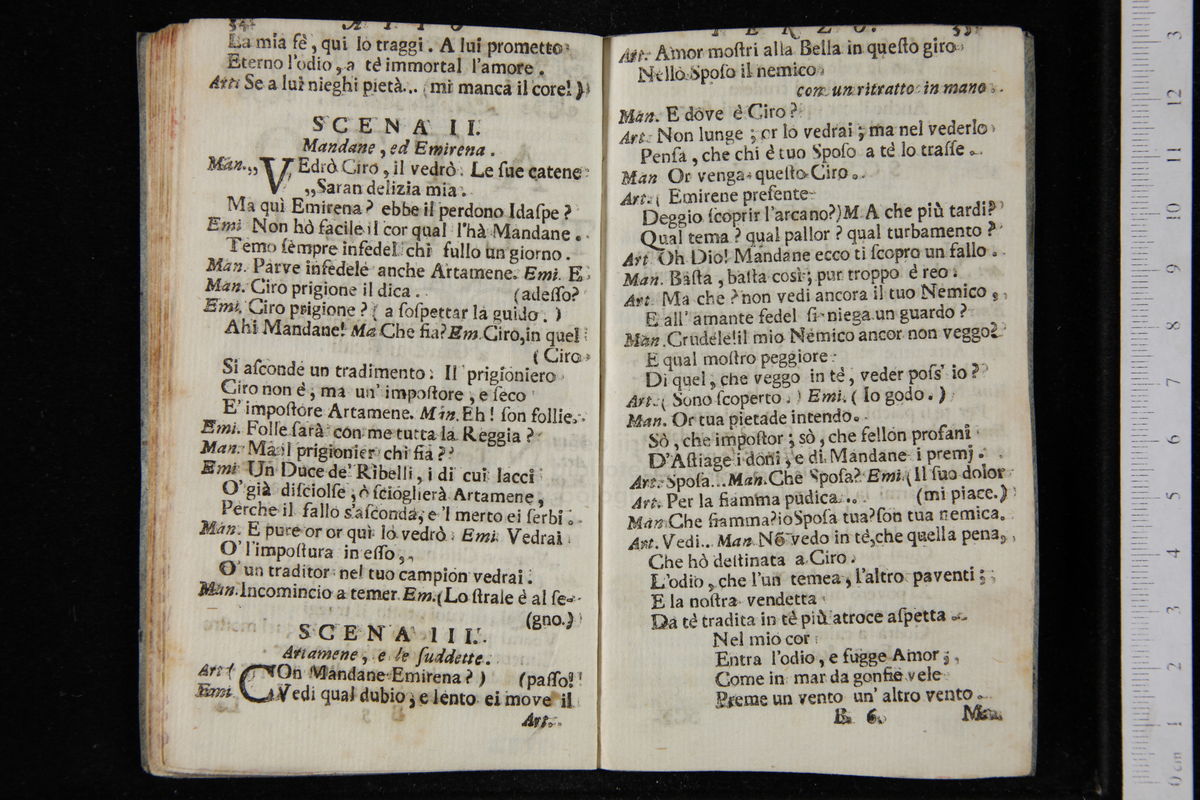 34 ATTO
La mia fè, qui lo traggi. A lui prometto
Eterno l'odio, a tè immortal l'amore.
Art. Se a lui nieghi pietà... (mi manca il core!)
SCENA II.
Mandane, ed Emirena.
Man. „VEdrò Ciro, il vedrò. Le sue catene
„Saran delizia mia.
Ma quì Emirena? ebbe il perdono Idaspe?
Emi. Non hò facile il cor qual l'hà Mandane.
Temo sempre infedel chi fullo un giorno.
Man. Parve infedele anche Artamene. Emi. E
Man. Ciro prigione il dica. (adesso?
Emi. Ciro prigione? (a sospettar la guido.)
Ahi Mandane! Ma. Che fia? Em. Ciro, in quel
(Ciro
Si asconde un tradimento. Il prigioniero
Ciro non è, ma un' impostore, e seco
E' impostore Artamene. Man. Eh! son follie.
Emi. Folle sarà con me tutta la Reggia?
Man. Ma il prigionier chi fia?
Emi. Un Duce de' Ribelli, i di cui lacci
O' già disciolse, ò scioglierà Artamene,
Perche il fallo s'asconda, e 'l merto ei serbi.
Man. E pure or or quì lo vedrò. Emi. Vedrai
O' l'impostura in esso,
O' un traditor nel tuo campion vedrai.
Man. Incomincio a temer. Em. (Lo strale è al se-
(gno.)
SCENA III.
Artamene, e le suddette.
Art. (COn Mandane Emirena?) (passo!
Emi. Vedi qual dubio, e lento ei move il
Art.
TERZO. 35
Art. Amor mostri alla Bella in questo giro
Nello Sposo il nemico
con un ritratto in mano.
Man. E dove è Ciro?
Art. Non lunge; or lo vedrai; ma nel vederlo
Pensa, che chi è tuo Sposo a tè lo trasse.
Man. Or venga questo Ciro.
Art. (Emirene presente
Deggio scoprir l'arcano?) M. A che più tardi?
Qual tema? qual pallor? qual turbamento?
Art. Oh Dio! Mandane ecco ti scopro un fallo.
Man. Basta, basta così; pur troppo è reo.
Art. Ma che? non vedi ancora il tuo Nemico,
E all' amante fedel si niega un guardo?
Man. Crudele! il mio Nemico ancor non veggo?
E qual mostro peggiore
Di quel, che veggo in tè, veder poss' io?
Art. (Sono scoperto.) Emi. (Io godo.)
Man. Or tua pietade intendo.
Sò, che impostor; sò, che fellon profani
D'Astiage i doni, e di Mandane i premj.
Art. Sposa... Man. Che Sposa? Emi. (Il suo dolor
Art. Per la fiamma pudica... (mi piace.)
Man. Che fiamma? io Sposa tua? son tua nemica.
Art. Vedi... Man. Nõ vedo in tè, che quella pena,
Che hò destinata a Ciro.
L'odio, che l'un temea, l'altro paventi;
E la nostra vendetta
Da tè tradita in tè più atroce aspetta.
Nel mio cor
Entra l'odio, e fugge Amor;
Come in mar da gonfie vele
Preme un vento un' altro vento.
B 6 Man.
0 cm 1 2 3 4 5 6 7 8 9 10 11 12 3